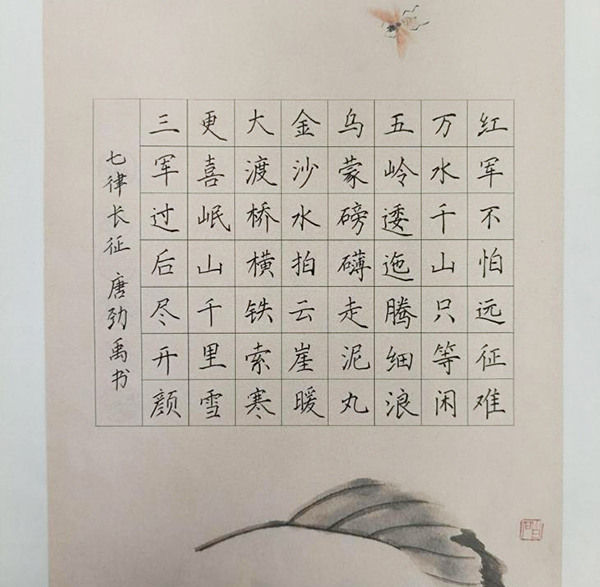 红军不怕远征难
万水千山只等闲
五岭逶迤腾细浪
乌蒙磅礴走泥丸
金沙水拍云崖暖
大渡桥横铁索寒
更喜岷山千里雪
三军过后尽开颜
七律长征 唐劲禹书